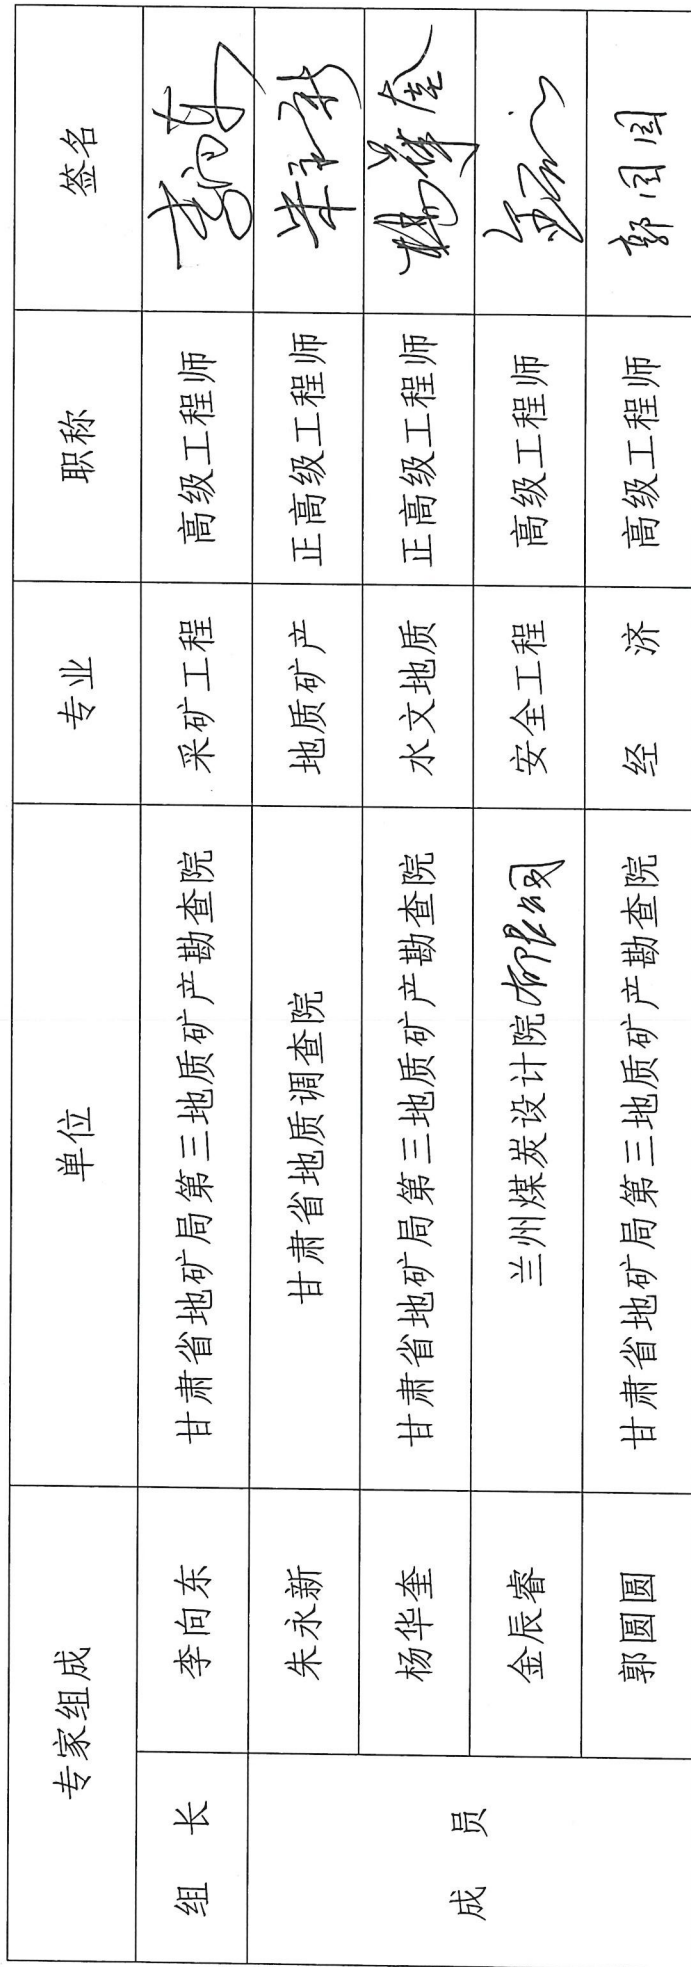 专家组成 单位 专业 职称 签名
组长 李向东 甘肃省地矿局第三地质矿产勘查院 采矿工程 高级工程师 李向东
成员 朱永新 甘肃省地质调查院 地质矿产 正高级工程师 朱永新
杨华奎 甘肃省地矿局第三地质矿产勘查院 水文地质 正高级工程师 杨华奎
金辰睿 兰州煤炭设计院有限公司 安全工程 高级工程师
郭圆圆 甘肃省地矿局第三地质矿产勘查院 经济 高级工程师 郭圆圆